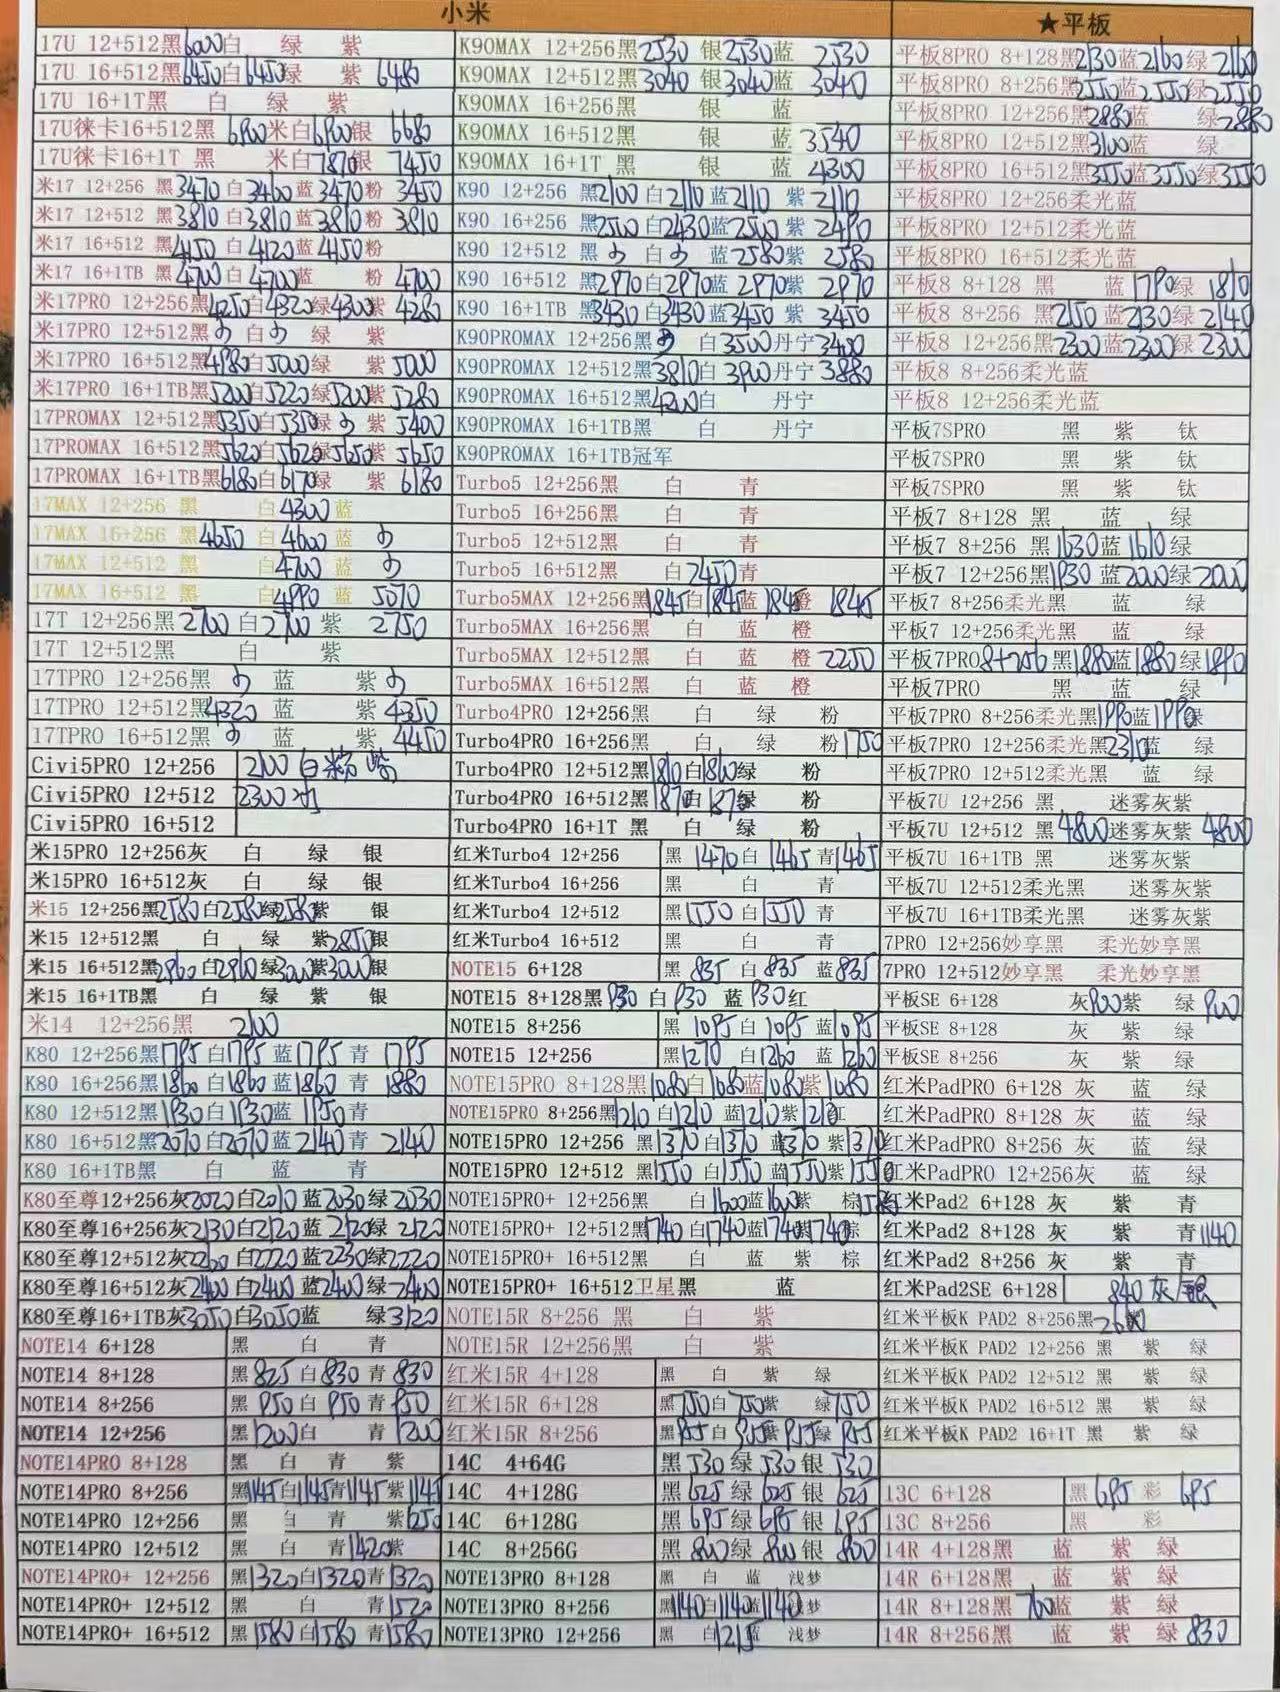 小米
17U 12+512黑6000白 绿 紫
17U 16+512黑6450白6450绿 紫 6480
17U 16+1T黑 白 绿 紫
17U徕卡16+512黑 6900米白6900银 6680
17U徕卡16+1T 黑 米白7870银 7450
米17 12+256 黑3470白3460蓝3470粉 3450
米17 12+512 黑3810白3810蓝3810粉 3810
米17 16+512 黑4150白4120蓝4150粉
米17 16+1TB 黑4700白4700蓝 粉 4700
米17PRO 12+256黑4250白4320绿4300紫 4280
米17PRO 12+512黑 白 绿 紫
米17PRO 16+512黑4980白5000绿 紫 5000
米17PRO 16+1TB黑5200白5220绿5200紫5280
17PROMAX 12+512黑5350白5350绿 紫 5400
17PROMAX 16+512黑5620白5620绿5650紫5650
17PROMAX 16+1TB黑6180白6170绿 紫 6180
17MAX 12+256 黑 白4300蓝
17MAX 16+256 黑4650白4600蓝
17MAX 12+512 黑 白4700蓝
17MAX 16+512 黑 白4990蓝 5070
17T 12+256黑2700白2700紫 2750
17T 12+512黑 白 紫
17TPRO 12+256黑 蓝 紫
17TPRO 12+512黑4320 蓝 紫4350
17TPRO 16+512黑 蓝 紫4450
Civi5PRO 12+256 2100白粉紫
Civi5PRO 12+512 2300
Civi5PRO 16+512
米15PRO 12+256灰 白 绿 银
米15PRO 16+512灰 白 绿 银
米15 12+256黑2580白2580绿2580紫 银
米15 12+512黑 白 绿 紫2850银
米15 16+512黑2960白2960绿3000紫3000银
米15 16+1TB黑 白 绿 紫 银
米14 12+256黑 2100
K80 12+256黑1795白1795蓝1795青 1795
K80 16+256黑1860白1860蓝1860青 1880
K80 12+512黑1930白1930蓝1950青
K80 16+512黑2070白2070蓝2140青 2140
K80 16+1TB黑 白 蓝 青
K80至尊12+256灰2020白2010蓝2030绿2030
K80至尊16+256灰2130白2120蓝2120绿2120
K80至尊12+512灰2200白2220蓝2230绿2220
K80至尊16+512灰2400白2400蓝2400绿2400
K80至尊16+1TB灰3050白3050蓝 绿3120
NOTE14 6+128 黑 白 青
NOTE14 8+128 黑825白830青830
NOTE14 8+256 黑950白950青950
NOTE14 12+256 黑1200白 青1200
NOTE14PRO 8+128 黑 白 青 紫
NOTE14PRO 8+256 黑1145白1145青1145紫1145
NOTE14PRO 12+256 白 青 紫1250
NOTE14PRO 12+512 黑 白 青1420紫
NOTE14PRO+ 12+256 黑1320白1320青1320
NOTE14PRO+ 12+512 黑 白 青1520
NOTE14PRO+ 16+512 黑1580白1580青1580
K90MAX 12+256黑2530 银2530蓝 2530
K90MAX 12+512黑3040 银3040蓝 3040
K90MAX 16+256黑 银 蓝
K90MAX 16+512黑 银 蓝3540
K90MAX 16+1T 黑 银 蓝4300
K90 12+256 黑2100白2110蓝2110 紫 2110
K90 16+256 黑2500白2430蓝2500紫 2490
K90 12+512 黑 白 蓝2580紫 2580
K90 16+512 黑2970白2970蓝2970紫 2970
K90 16+1TB 黑3430白3430蓝3450 紫 3450
K90PROMAX 12+256黑 白3500丹宁3400
K90PROMAX 12+512黑3810白3900丹宁3880
K90PROMAX 16+512黑4200白 丹宁
K90PROMAX 16+1TB黑 白 丹宁
K90PROMAX 16+1TB冠军
Turbo5 12+256黑 白 青
Turbo5 16+256黑 白 青
Turbo5 12+512黑 白 青
Turbo5 16+512黑 白2450青
Turbo5MAX 12+256黑1845白1845蓝1845橙 1845
Turbo5MAX 16+256黑 白 蓝 橙
Turbo5MAX 12+512黑 白 蓝 橙2250
Turbo5MAX 16+512黑 白 蓝 橙
Turbo4PRO 12+256黑 白 绿 粉
Turbo4PRO 16+256黑 白 绿 粉1750
Turbo4PRO 12+512黑1810白1810绿 粉
Turbo4PRO 16+512黑1870白1870绿 粉
Turbo4PRO 16+1T 黑 白 绿 粉
红米Turbo4 12+256 黑 1470白 1465青1465
红米Turbo4 16+256 黑 白 青
红米Turbo4 12+512 黑1550白1550 青
红米Turbo4 16+512 黑 白 青
NOTE15 6+128 黑 835 白 835 蓝835
NOTE15 8+128黑930 白 930 蓝 930红
NOTE15 8+256 黑 1095白 1095蓝1095
NOTE15 12+256 黑1270 白1260 蓝 1260
NOTE15PRO 8+128黑1080白1080蓝1080紫1080
NOTE15PRO 8+256黑1210白1210蓝1210紫1210红
NOTE15PRO 12+256 黑1370白1370 蓝1370 紫1370
NOTE15PRO 12+512 黑1550 白1550 蓝1550紫1550
NOTE15PRO+ 12+256黑 白1600蓝1600紫 棕
NOTE15PRO+ 12+512黑1740白1740蓝1740紫1740棕
NOTE15PRO+ 16+512黑 白 蓝 紫 棕
NOTE15PRO+ 16+512卫星黑 蓝
NOTE15R 8+256 黑 白 紫
NOTE15R 12+256黑 白 紫
红米15R 4+128 黑 白 紫 绿
红米15R 6+128 黑750白750紫 绿750
红米15R 8+256 黑955白955紫955绿955
14C 4+64G 黑530绿530银530
14C 4+128G 黑625绿625银625
14C 6+128G 黑695绿695银695
14C 8+256G 黑800绿800银 800
NOTE13PRO 8+128 黑 白 蓝 浅梦
NOTE13PRO 8+256 黑1140白1140蓝1140浅梦
NOTE13PRO 12+256 黑 白1215蓝 浅梦
★平板
平板8PRO 8+128黑2130蓝2160绿2160
平板8PRO 8+256黑2550蓝2550绿2550
平板8PRO 12+256黑2880蓝 绿2880
平板8PRO 12+512黑3100蓝 绿
平板8PRO 16+512黑3550蓝3550绿3550
平板8PRO 12+256柔光蓝
平板8PRO 12+512柔光蓝
平板8PRO 16+512柔光蓝
平板8 8+128 黑 蓝1790绿 1810
平板8 8+256 黑2150蓝2130绿2140
平板8 12+256黑2300蓝2300绿2300
平板8 8+256柔光蓝
平板8 12+256柔光蓝
平板7SPRO 黑 紫 钛
平板7SPRO 黑 紫 钛
平板7SPRO 黑 紫 钛
平板7 8+128 黑 蓝 绿
平板7 8+256 黑1630蓝1610绿
平板7 12+256黑1930蓝2000绿2000
平板7 8+256柔光黑 蓝 绿
平板7 12+256柔光黑 蓝 绿
平板7PRO8+256黑1880蓝1880绿1890
平板7PRO 黑 蓝 绿
平板7PRO 8+256柔光黑1990蓝1990绿
平板7PRO 12+256柔光黑2310蓝 绿
平板7PRO 12+512柔光黑 蓝 绿
平板7U 12+256 黑 迷雾灰紫
平板7U 12+512 黑4800迷雾灰紫 4800
平板7U 16+1TB 黑 迷雾灰紫
平板7U 12+512柔光黑 迷雾灰紫
平板7U 16+1TB柔光黑 迷雾灰紫
7PRO 12+256妙享黑 柔光妙享黑
7PRO 12+512妙享黑 柔光妙享黑
平板SE 6+128 灰900紫 绿 900
平板SE 8+128 灰 紫 绿
平板SE 8+256 灰 紫 绿
红米PadPRO 6+128 灰 蓝 绿
红米PadPRO 8+128 灰 蓝 绿
红米PadPRO 8+256 灰 蓝 绿
红米PadPRO 12+256灰 蓝 绿
红米Pad2 6+128 灰 紫 青
红米Pad2 8+128 灰 紫 青1140
红米Pad2 8+256 灰 紫 青
红米Pad2SE 6+128 840 灰/银
红米平板K PAD2 8+256黑
红米平板K PAD2 12+256 黑 紫 绿
红米平板K PAD2 12+512 黑 紫 绿
红米平板K PAD2 16+512 黑 紫 绿
红米平板K PAD2 16+1T 黑 紫 绿
13C 6+128 黑695 彩 695
13C 8+256 黑 彩
14R 4+128黑 蓝 紫 绿
14R 6+128黑 蓝 紫 绿
14R 8+128黑 700蓝 紫 绿
14R 8+256黑 蓝 紫 绿830